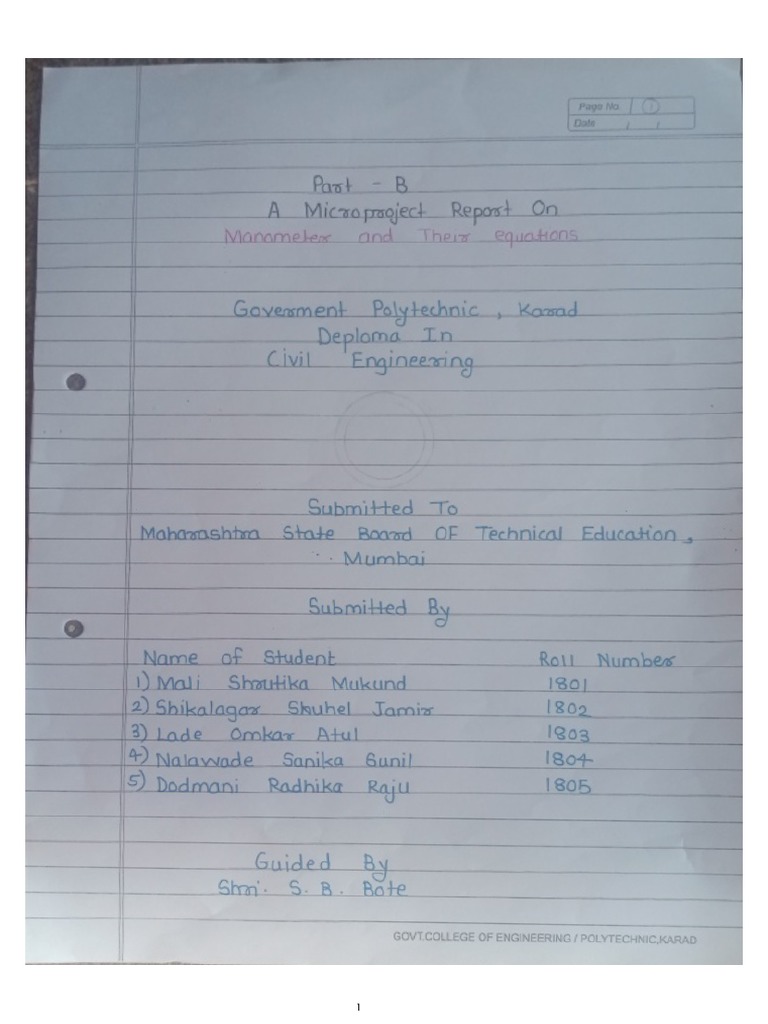 Page No. 1
Date / /
Part - B
A Microproject Report On
Manometer and Their equations
Goverment Polytechnic , Karad
Deploma In
Civil Engineering
Submitted To
Maharashtra State Board OF Technical Education,
Mumbai
Submitted By
Name of Student Roll Number
1) Mali Shrutika Mukund 1801
2) Shikalagar Skuhel Jamir 1802
3) Lade Omkar Atul 1803
4) Nalawade Sanika Sunil 1804
5) Dodmani Radhika Raju 1805
Guided By
Shri. S. B. Bote
GOVT.COLLEGE OF ENGINEERING / POLYTECHNIC,KARAD
1